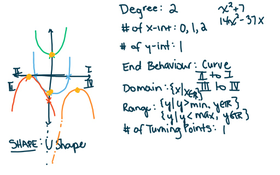 Degree: 2
x²+7
14x²-37x
# of x-int: 0, 1, 2
# of y-int: 1
End Behaviour: Curve
II to I
III to IV
Domain: {x|xεR}
Range: {y|y>min, yεR}
{y|y<max, yεR}
# of Turning Points: 1
II
I
III
IV
SHAPE: U Shape